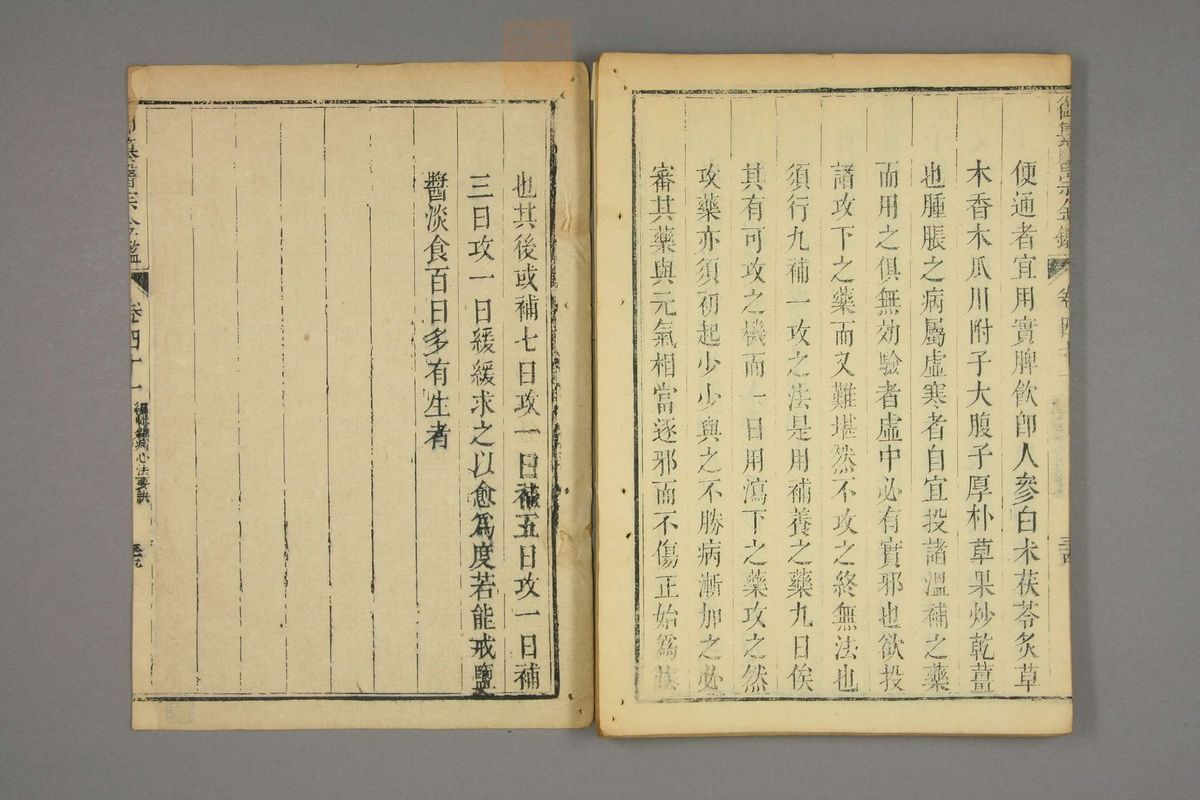 便通者宜用實脾飲卽人參白术茯苓炙草
木香木瓜川附子大腹子厚朴草果炒乾薑
也腫脹之病屬虛寒者自宜投諸溫補之藥
而用之俱無効驗者虛中必有實邪也欲投
諸攻下之藥而又難堪然不攻之終無法也
須行九補一攻之法是用補養之藥九日俟
其有可攻之機而一日用瀉下之藥攻之然
攻藥亦須初起少少與之不勝病漸加之必
審其藥與元氣相當逐邪而不傷正始爲法
也其後或補七日攻一日補五日攻一日補
三日攻一日緩緩求之以愈爲度若能戒鹽
醬淡食百日多有生者
纂醫宗金鑑
卷四十一
編輯雜病心法要訣